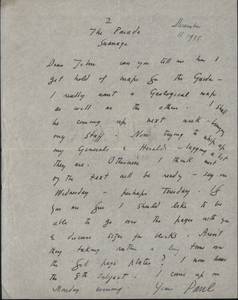 2
The Parade
Swanage
December
11 1935
Dear John can you tell me how I
get hold of maps for the Guide –
I really want a Geological map
as well as the others. I shall
be coming up next week – bring
my stuff. Now trying to whip up
my Generals & Heralds – lagging a bit
they are. Otherwise I think most
of the text will be ready – say on
Wednesday – perhaps Tuesday. If
you are free I should like to be
able to go over the pages with you
& discuss sizes for blocks. Aren't
they taking rather a long time over
the full page plates? I now have
the 8th subject. I come up on
Monday evening Yours Paul